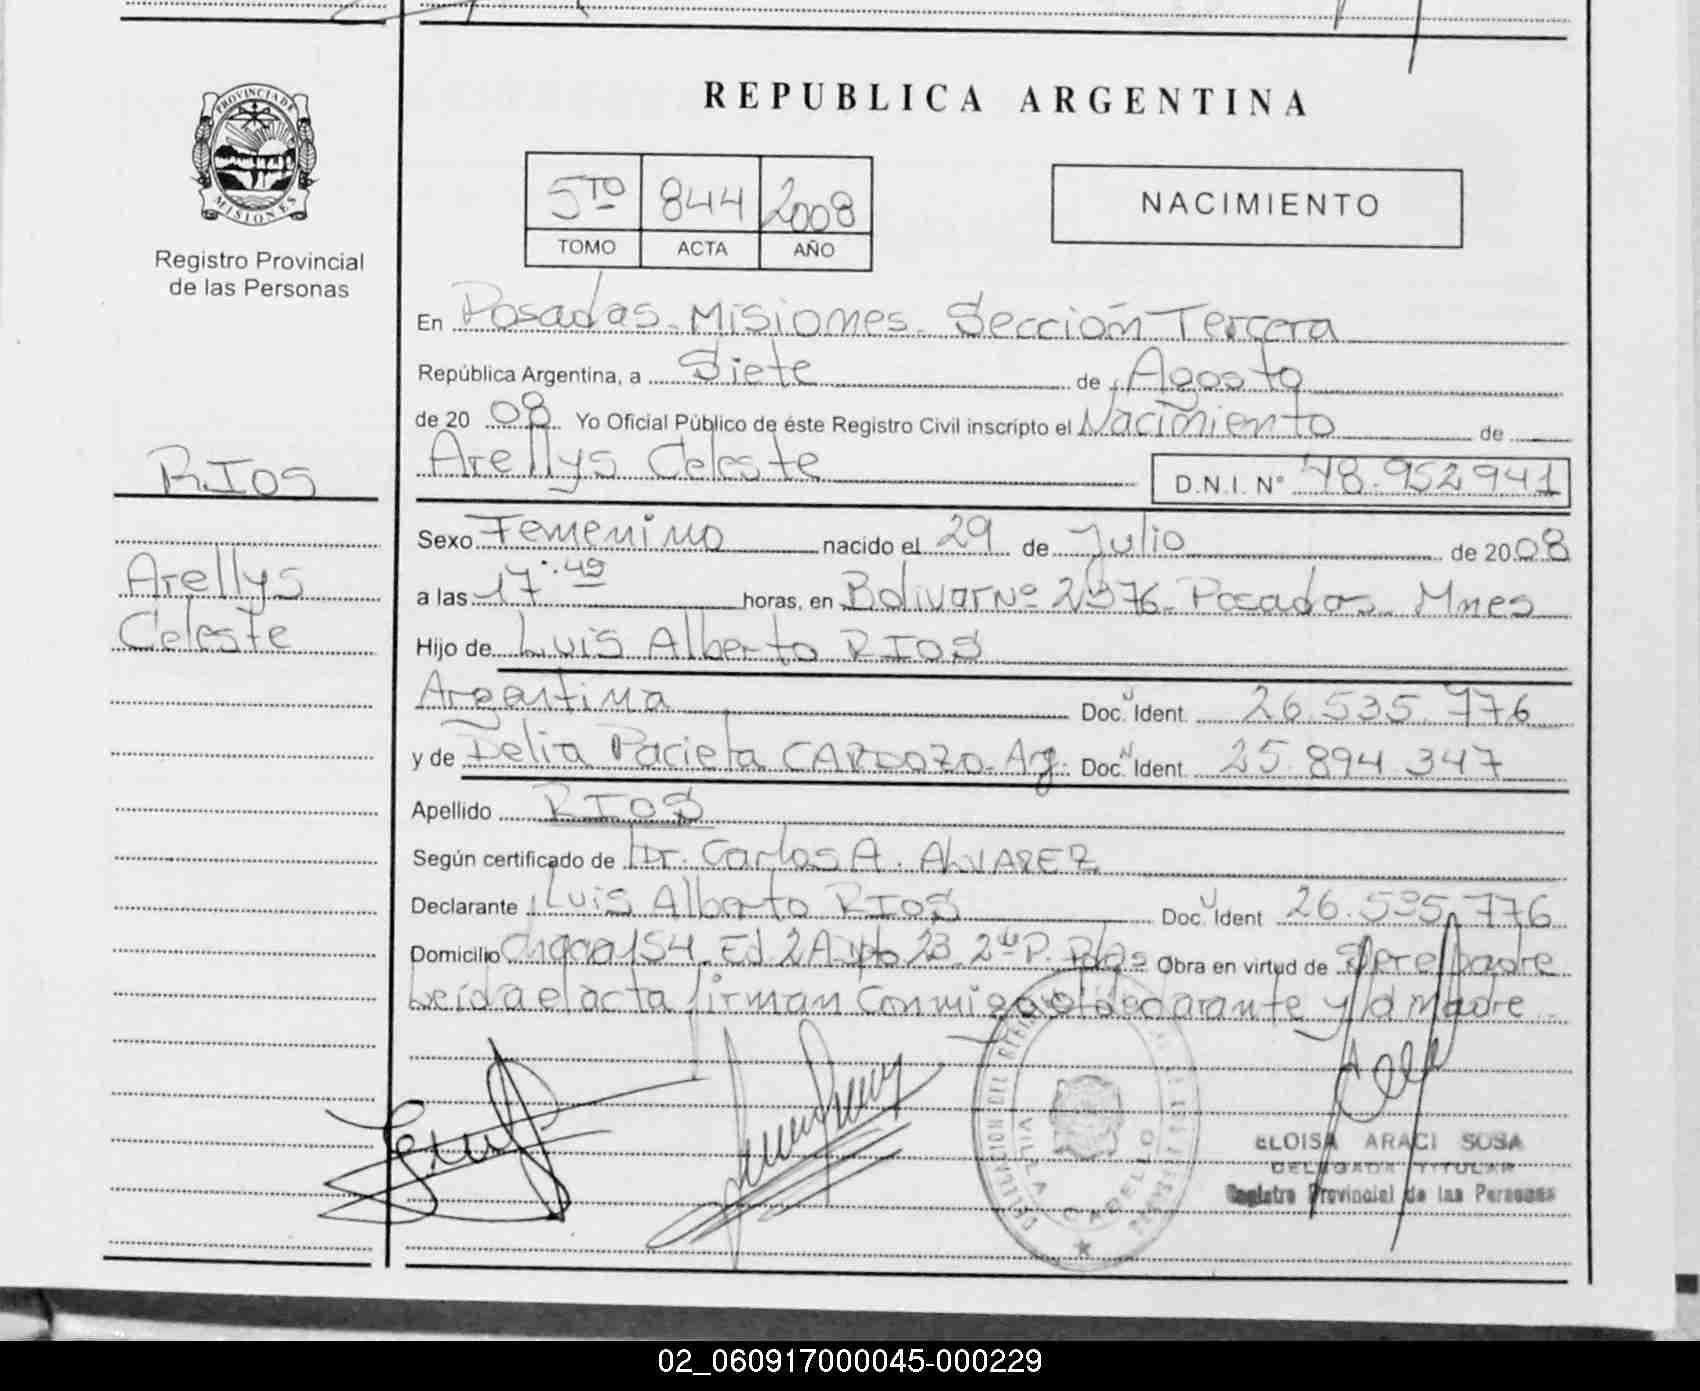 REPUBLICA ARGENTINA
PROVINCIA DE
MISIONES
Registro Provincial
de las Personas
5TO 844 2008
TOMO ACTA AÑO
NACIMIENTO
En Posadas - Misiones - Sección Tercera
República Argentina, a Siete de Agosto
de 20 08 Yo Oficial Público de éste Registro Civil inscripto el Nacimiento de
Arellys Celeste D.N.I. N° 48.952941
RIOS
Arellys
Celeste
Sexo Femenino nacido el 29 de Julio de 2008
a las 17:49 horas, en Bolivar Nº 2976 - Posadas - Mnes
Hijo de Luis Alberto RIOS
Argentina Doc. Ident. 26.535.776
y de Delia CARDOZO - Arg. Doc. Ident. 25.894.347
Apellido RIOS
Según certificado de Dr. Carlos A. ALVAREZ
Declarante Luis Alberto RIOS Doc. Ident 26.535.776
Domicilio 154 - Ed 2 A 23 - 2do P. Obra en virtud de Ser el padre
Leída el acta firman Conmigo el declarante y la madre
ELOISA ARACI SOSA
DELEGADA TITULAR
Registro Provincial de las Personas
02_060917000045-000229